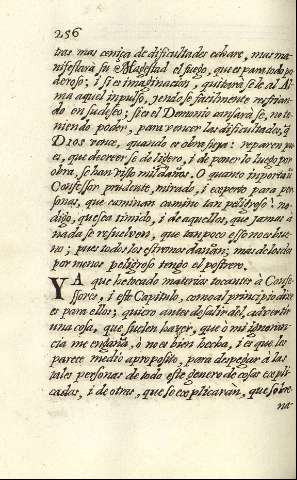 256
tras mas ceniza de dificultades echare, mas ma-
nifestarà su Magestad el fuego, que es para todo po-
deroso; i si es imaginacion, quitarà sele al Al-
ma aquel inpulso, iendose facilmente resfrian-
do en su deseo; si es el Demonio cansarà se, no te-
niendo poder, para vencer las dificultades, q̃
DIOS vence, quando es obra suya: reparen pu-
es, que de creer se de ligero, i de poner lo luego por
obra, se han visto mil daños. O quanto inporta ũ
Confessor prudente, mirado, i experto para per-
sonas, que caminan camino tan peligroso! no
digo, que sea timido, i de aquellos, que jamas à
nada se resuelven, que tanpoco esso no es bue-
no; pues todos los estremos dañan; mas de los dos
por menos peligroso tengo el postrero.
YA que he tocado materias tocantes à Confe-
ssores, i este Capitulo, como al principio dixe
es para ellos; quiero antes de salir del, advertir
una cosa, que suelen hacer, que ò mi ignoran-
cia me engaña, ò no es bien hecha, i es que les
parece medio aproposito, para despegar à las
tales personas de todo este genero de cosas expli-
cadas, i de otras, que se explicaràn, que sobre-
na-